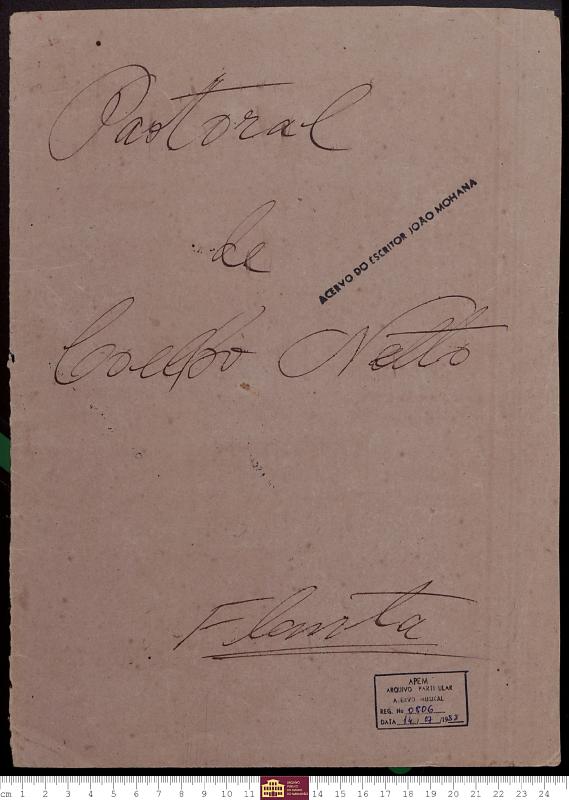 Pastoral
de
ACERVO DO ESCRITOR JOÃO MOHANA
Coelho Netto
Flauta
APEM
ARQUIVO PARTICULAR
ACERVO MUSICAL
REG. No 0506
DATA 14 / 07 / 1983
cm 1 2 3 4 5 6 7 8 9 10 11 14 15 16 17 18 19 20 21 22 23 24